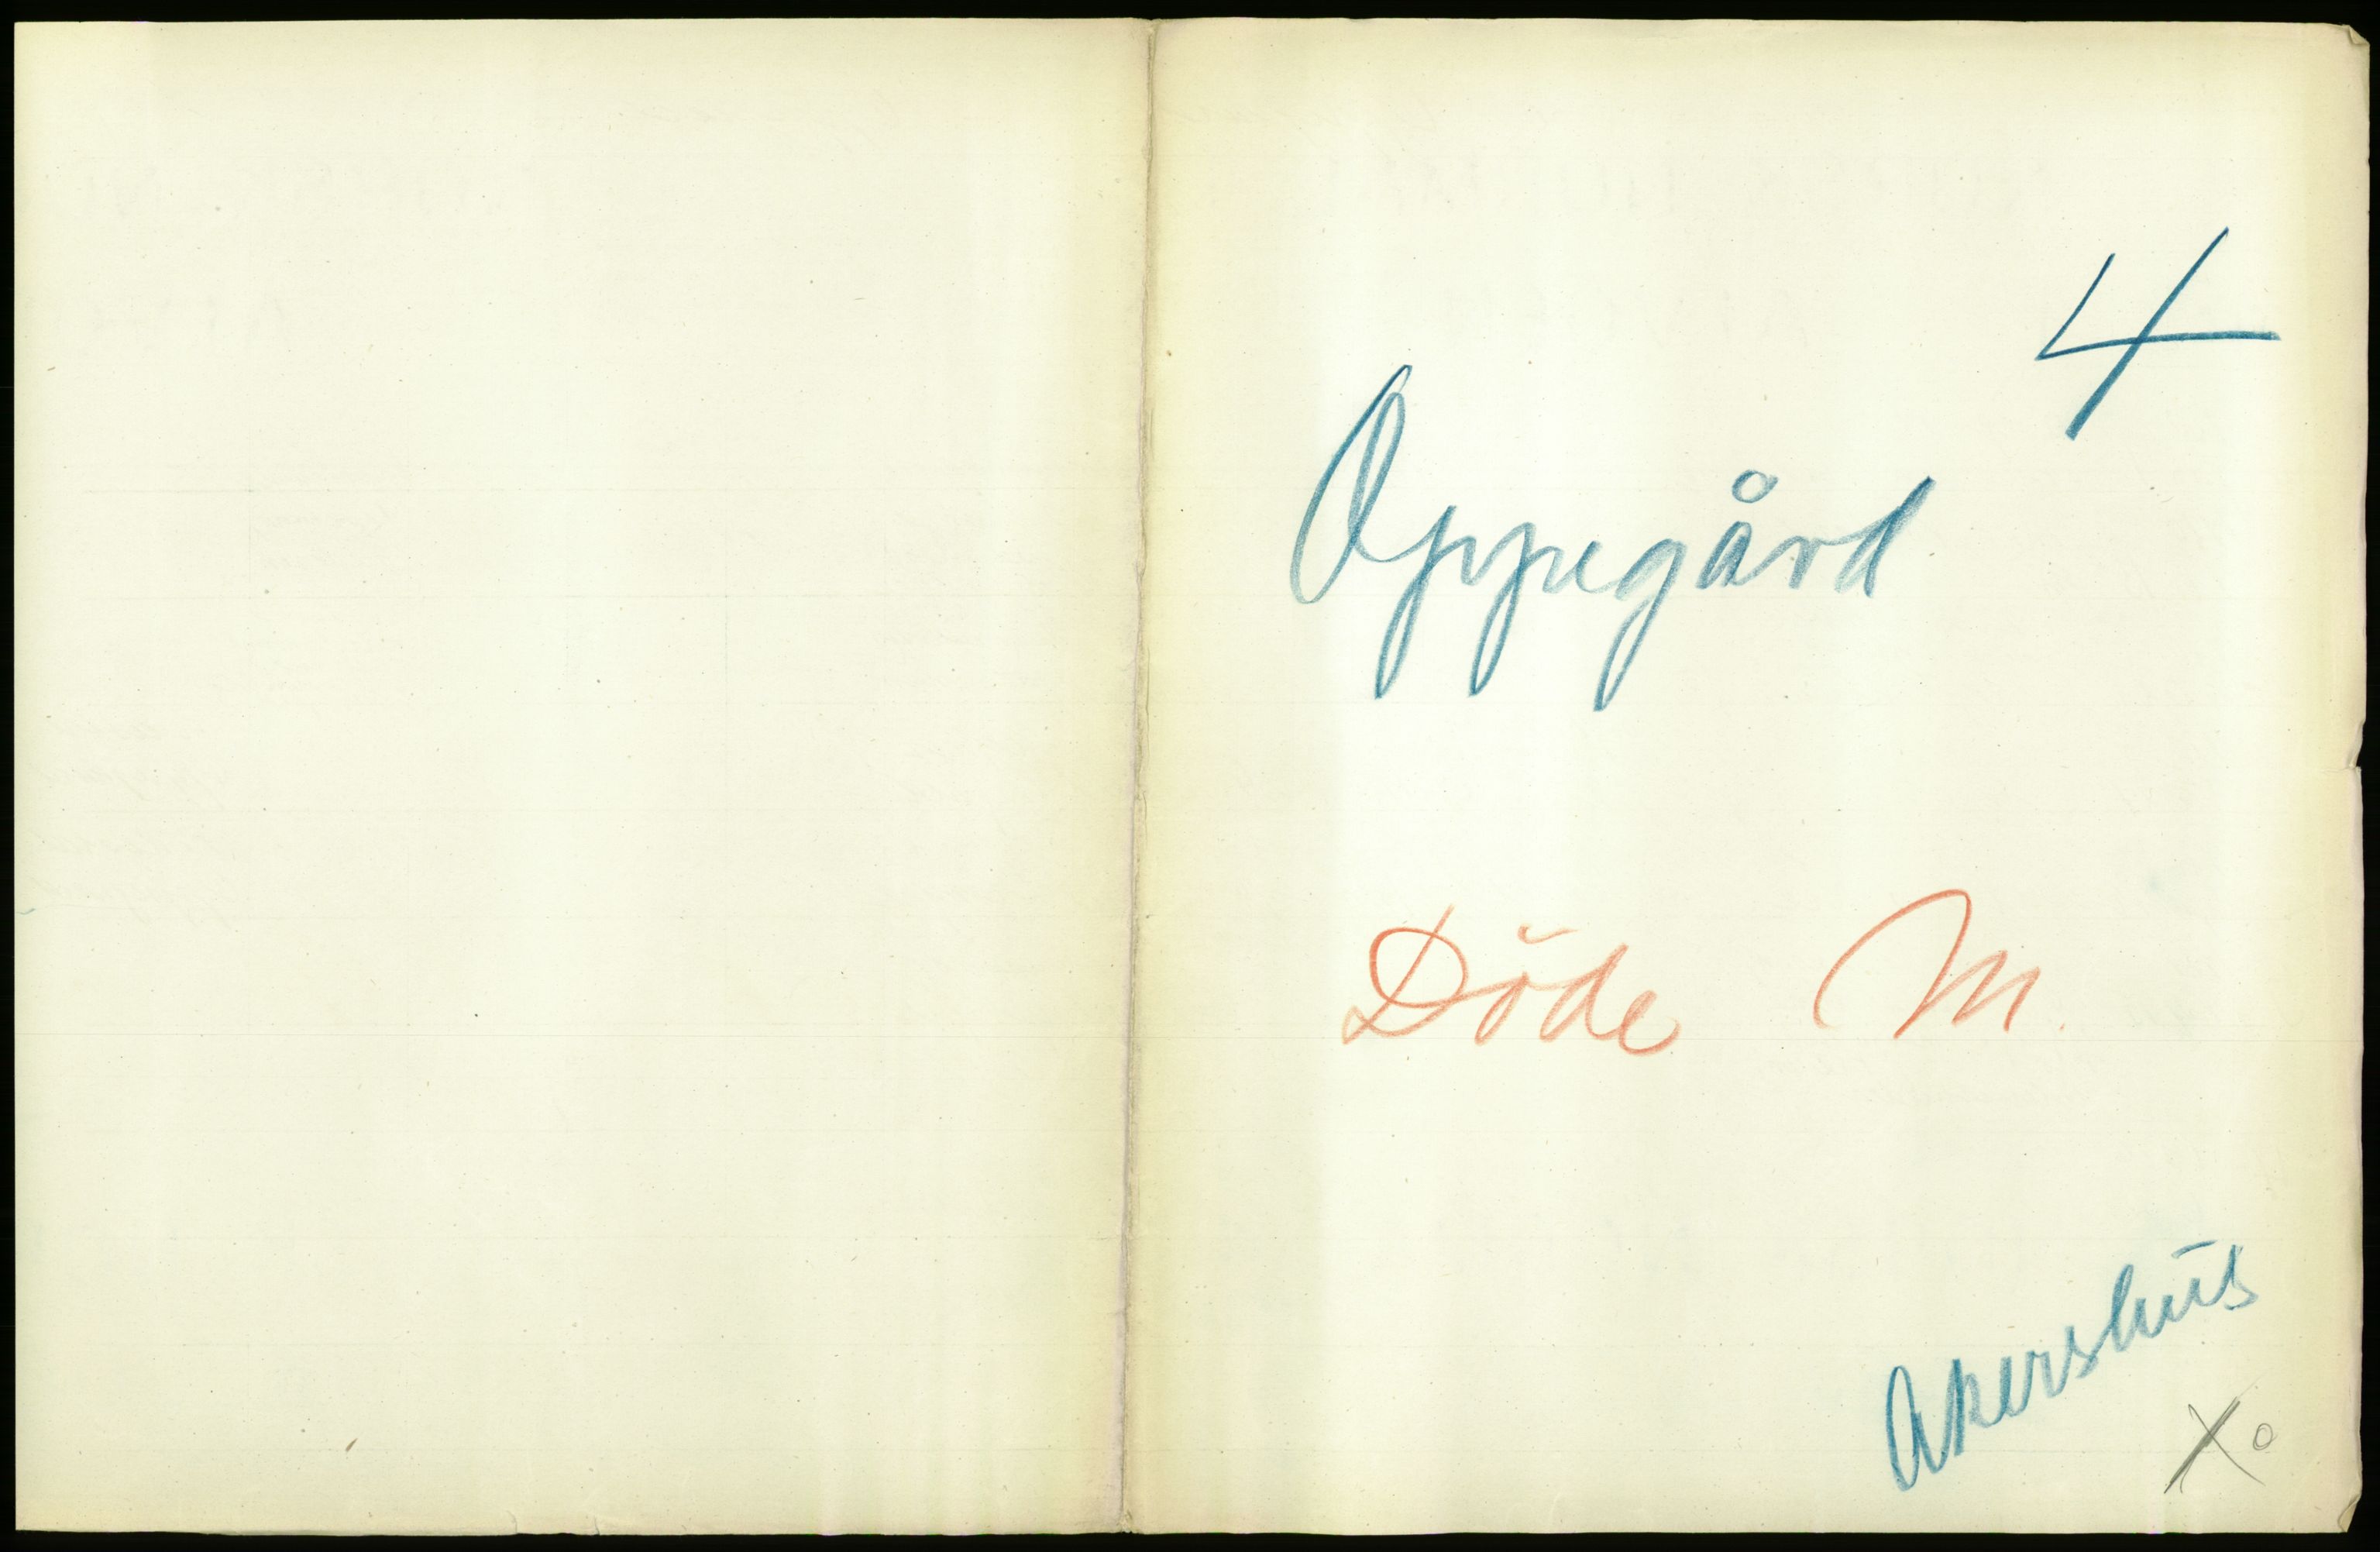 4
Oppegård
Döde M.
Akershus
X o